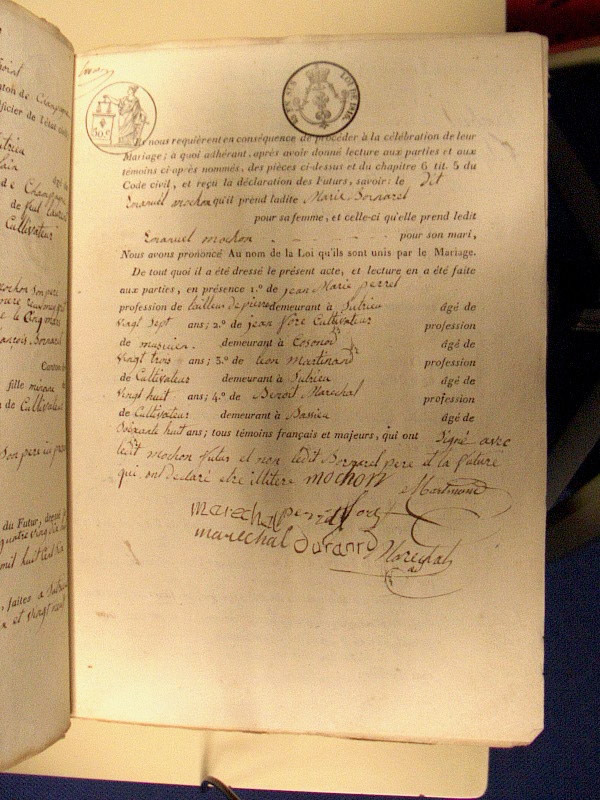 50 c
LOI DE 1816
Ils nous requièrent en conséquence de procéder à la célébration de leur
Mariage; à quoi adhérant, après avoir donné lecture aux parties et aux
témoins ci-après nommés, des pièces ci-dessus et du chapitre 6 tit. 5 du
Code civil, et reçu la déclaration des Futurs, savoir: le dit
Emanuel mochon qu'il prend ladite Marie Bornarel
pour sa femme, et celle-ci qu'elle prend ledit
Emanuel mochon pour son mari,
Nous avons prononcé Au nom de la Loi qu'ils sont unis par le Mariage.
De tout quoi il a été dressé le présent acte, et lecture en a été faite
aux parties, en présence 1.º de jean Marie perret
profession de tailleur de pierre demeurant à Sutrieu âgé de
vingt Sept ans; 2.º de jean fore Cultivateur profession
de musicien demeurant à âgé de
vingt trois ans; 3.º de leon Martinand profession
de Cultivateur demeurant à Sutrieu âgé de
vingt huit ans; 4.º de Benoit Marechal profession
de Cultivateur demeurant à Bassieu âgé de
Soixante huit ans; tous témoins français et majeurs, qui ont Signé avec
ledit mochon futur et non ledit Bornarel pere et la future
qui ont declaré etre illitere mochon Martinand
marechal perret fore
marechal durand Marechal
Choint
officier de l'état civil
Sutrieu
âgé de
de Champagne
Cultivateur
mochon Son pere
françois Bornarel
Canton de
fille mineure
de Cultivateur
Son pere ici present
du Futur, dressé
quatre vingt dix
mil huit cent dix
, faites à Sutrieu
et vingt neuf